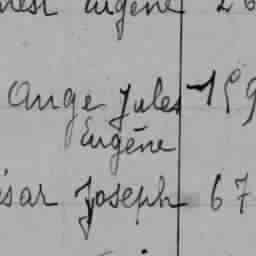 Eugène 26
Ange Jules 159
Eugène
ésar Joseph 67